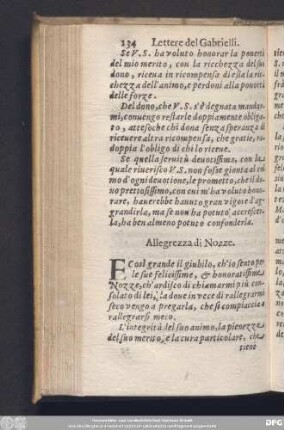 134 Lettere del Gabrielli.
Se V.S. ha voluto honorar la povertà
del mio merito, con la ricchezza del suo
dono, riceva in ricompensa di essa la ric-
chezza dell'animo, e perdoni alla povertà
delle forze.
Del dono, che V.S. s'è degnata mandar-
mi, convengo restarle doppiamente obliga-
to, attesoche chi dona senza speranza di
ricevere altra ricompensa, che gratie, ra-
doppia l'obligo di chi lo riceve.
Se quella servitù devotissima, con la
quale riverisco V.S. non fosse gionta al col
mo d'ogni devotione, le prometto, che il do-
no prettosissimo, con cui m'ha voluto hono-
rare, haverebbe havuto gran vigore d'ag-
grandirla, ma se non ha potuto accrescer-
la, ha ben almeno potuto confonderla.
Allegrezza di Nozze.
E Così grande il giubilo, ch'io sento per
le sue felicissime, & honoratissime
Nozze, ch'ardisco di chiamarmi più con-
solato di lei, la dove in vece di rallegrarmi
seco vengo a pregarla, che si compiaccia
rallegrarsi meco.
L'integrità del suo animo, la pienezza
del suo merito, e la cura particolare, che